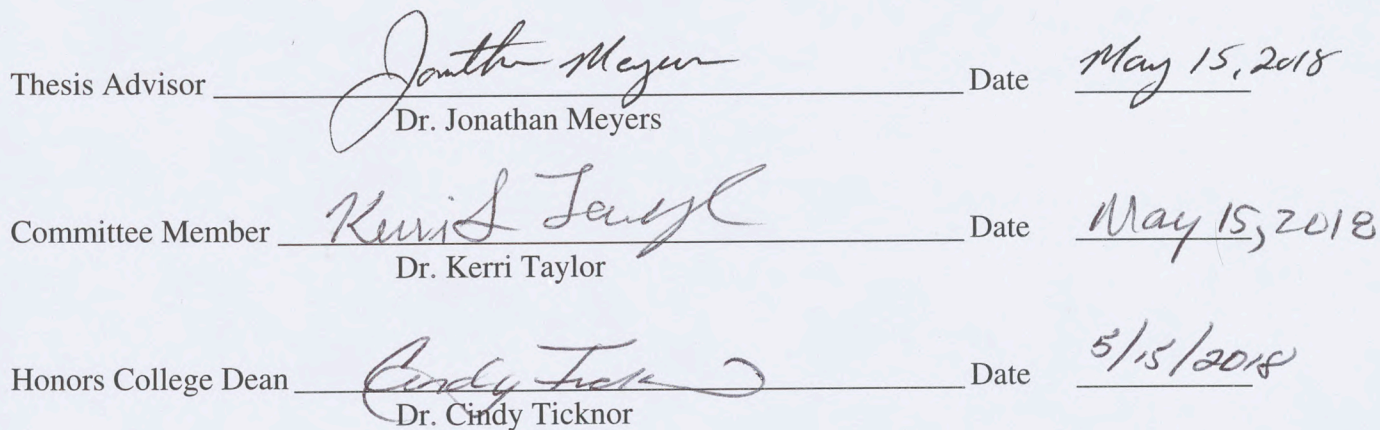 Thesis Advisor Jonathan Meyers Date May 15, 2018
Dr. Jonathan Meyers
Committee Member Kerri L Taylor Date May 15, 2018
Dr. Kerri Taylor
Honors College Dean Cindy Ticknor Date 5/15/2018
Dr. Cindy Ticknor